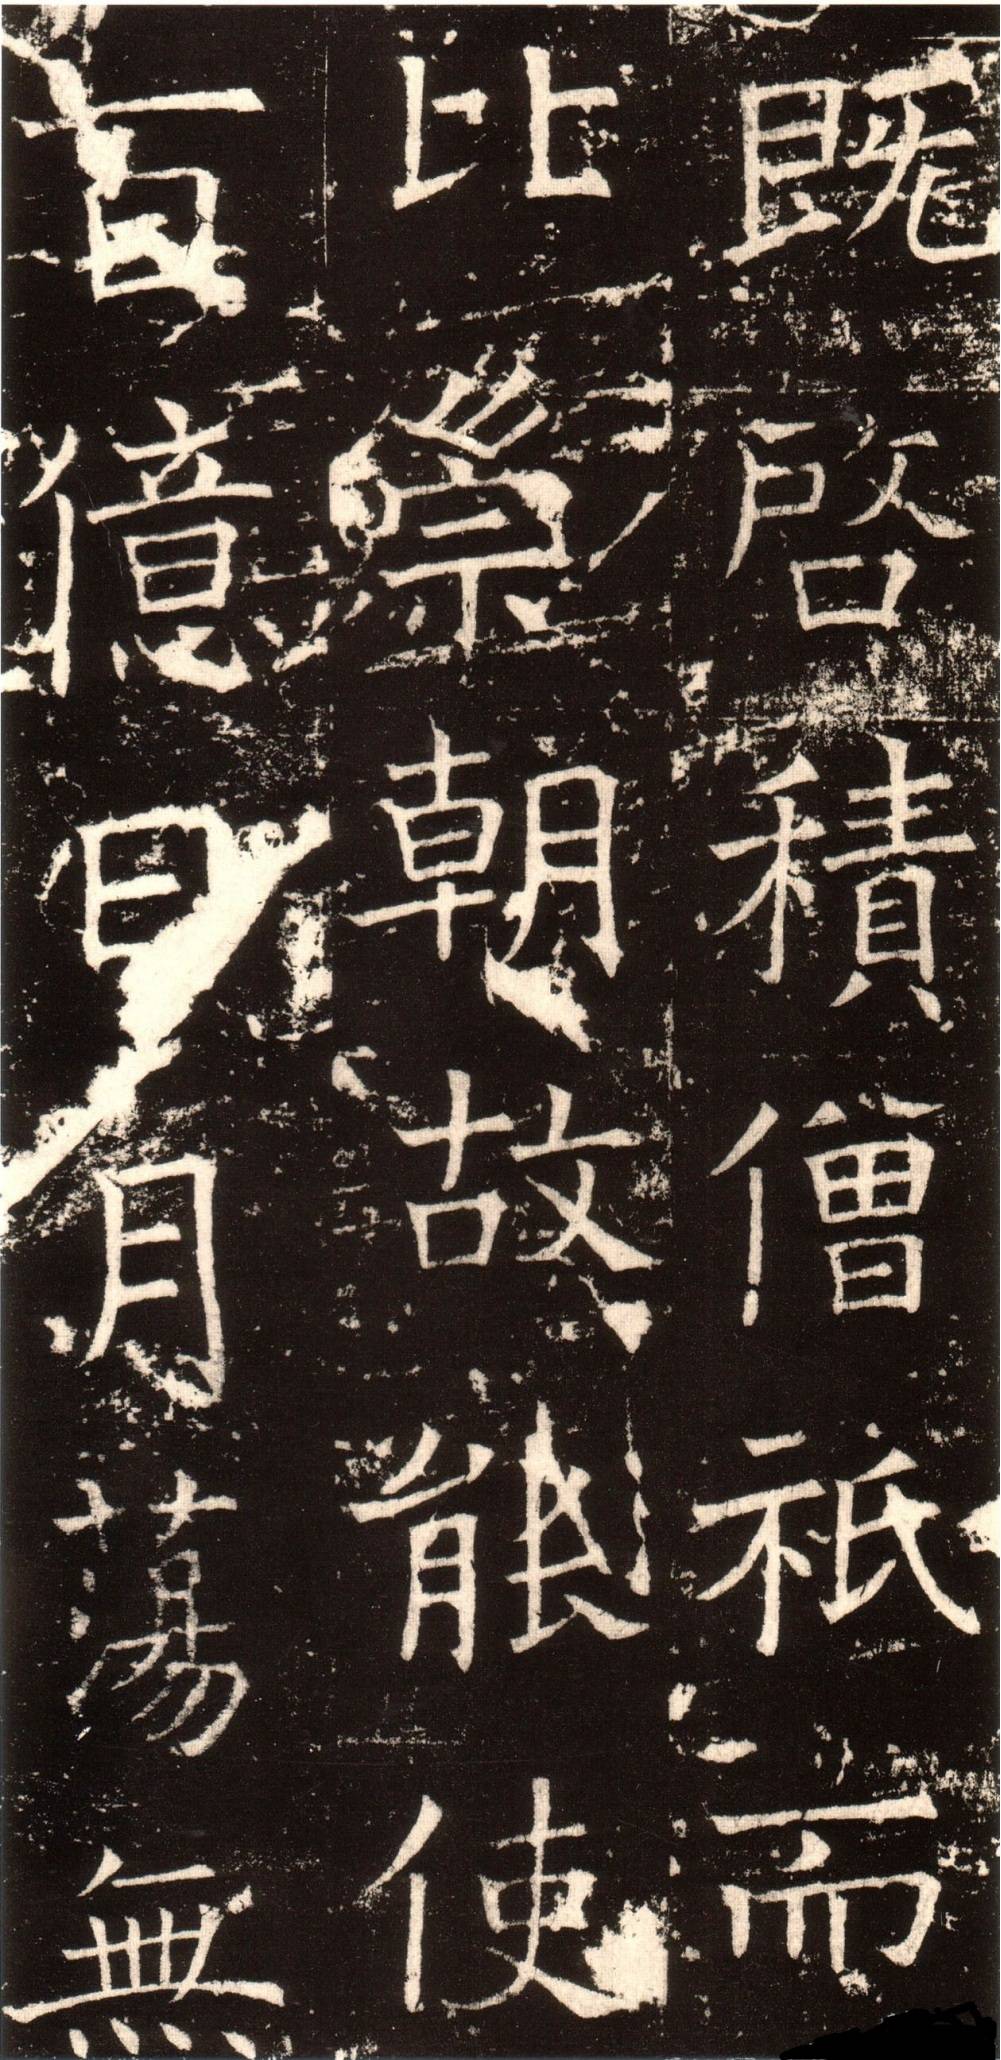 既啓積僧祇而
比崇朝故能使
百億日月蕩無